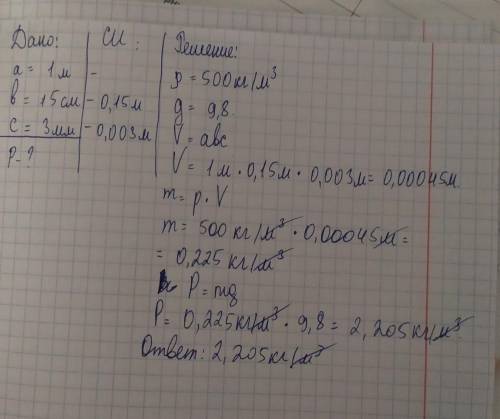 Дано:
a = 1м
b = 15см
c = 3мм
P - ?
СИ:
-
- 0,15м
- 0,003м
Решение:
ρ = 500кг/м³
g = 9,8
V = abc
V = 1м · 0,15м · 0,003м = 0,00045м
m = ρ · V
m = 500 кг/м³ · 0,00045м =
= 0,225 кг/м³
P = mg
P = 0,225кг/м³ · 9,8 = 2,205кг/м³
Ответ: 2,205кг/м³